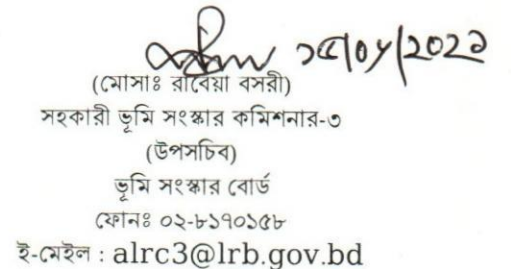 ১৫/০৮/২০২১
(মোসাঃ রাবেয়া বসরী)
সহকারী ভূমি সংস্কার কমিশনার-৩
(উপসচিব)
ভূমি সংস্কার বোর্ড
ফোনঃ ০২-৮১৭০১৫৮
ই-মেইল : alrc3@lrb.gov.bd